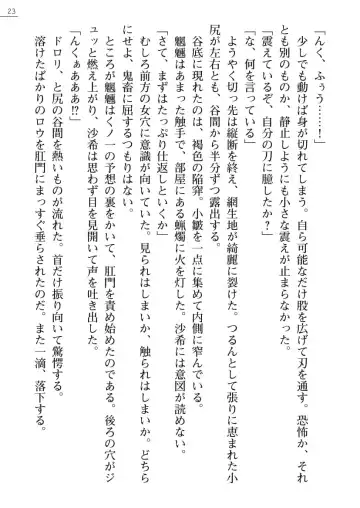 23
「んく、ふぅう……！」
　少しでも動けば身が切れてしまう。自ら可能なだけ股を広げて刃を通す。恐怖か、それ
とも別のものか、静止しようにも小さな震えが止まらなかった。
「震えているぞ、自分の刀に臆したか？」
「な、何を言っている」
　ようやく切っ先は縦断を終え、網生地が綺麗に裂けた。つるんとして張りに恵まれた小
尻が左右とも、谷間から半分ずつ露出する。
　谷底に現れたのは、褐色の陥穽。小皺を一点に集めて内側に窄んでいる。
「さて、まずはたっぷり仕返しといくか」
　魍魎はあまった触手で、部屋にある蝋燭に火を灯した。沙希には意図が読めない。
　むしろ前方の女穴に意識が向いていた。見られはしまいか、触られはしまいか。どちら
にせよ、鬼畜に屈するつもりはない。
　ところが魍魎はくノ一の予想の裏をかいて、肛門を責め始めたのである。後ろの穴がジ
ュッと燃え上がり、沙希は思わず目を見開いて声を吐き出した。
「んくぁあああ⁉」
　ドロリ、と尻の谷間を熱いものが流れた。首だけ振り向いて驚愕する。
　溶けたばかりのロウを肛門にまっすぐ垂らされたのだ。また一滴、落下する。